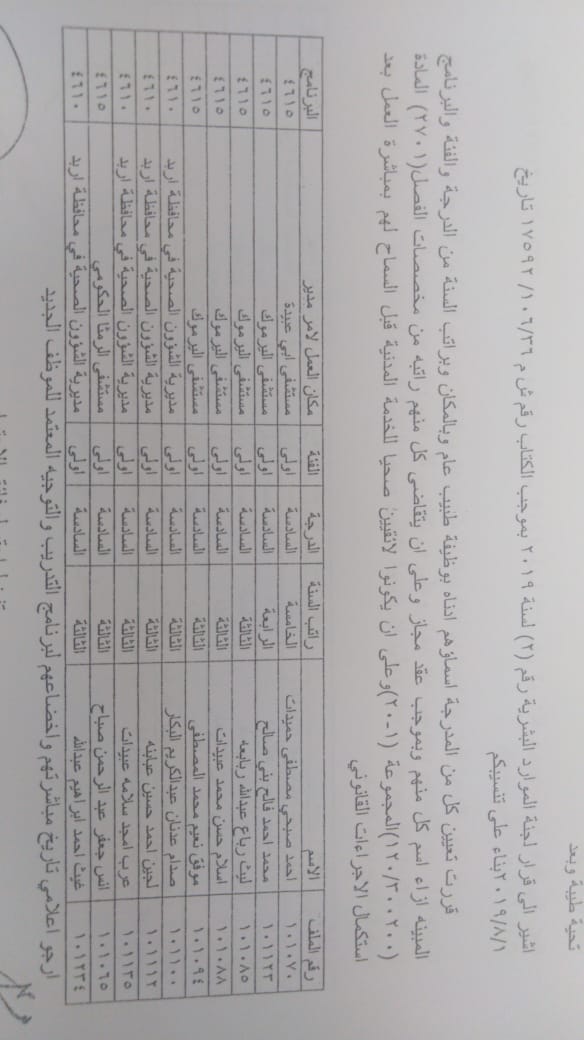 تحية طيبة وبعد
اشير الى قرار لجنة الموارد البشرية رقم (٢) لسنة ٢٠١٩ بموجب الكتاب رقم ش م ١٧٥٩٢/١٠٦/٣٦ تاريخ
٢٠١٩/٨/١ بناء على تنسيبكم
قررت تعيين كل من المدرجة اسماؤهم ادناه بوظيفة طبيب عام وبالمكان وبراتب السنة من الدرجة والفئة والبرنامج
المبينه ازاء اسم كل منهم وبموجب عقد مجاز وعلى ان يتقاضى كل منهم راتبه من مخصصات الفصل(٢٧٠١) المادة
(١٢٠/٣٠٠٢٠٠)المجموعة (٢٠-١)وعلى ان يكونوا لائقين صحيا للخدمة المدنية قبل السماح لهم بمباشرة العمل بعد
استكمال الاجراءات القانوني
رقم الملف الاسم راتب السنة الدرجة الفئة مكان العمل لامر مدير البرنامج
١٠١٠٧٠ احمد صبحي مصطفى حميدات الخامسة السادسة اولى مستشفى ابي عبيدة ٤٦١٥
١٠١١٢٣ محمد احمد فالح بني صالح الرابعة السادسة اولى مستشفى اليرموك ٤٦١٥
١٠١٠٨٥ ليث رباع عبدالله ربابعه الثالثة السادسة اولى مستشفى اليرموك ٤٦١٥
١٠١٠٨٨ اسلام حسن محمد عبيدات الثالثة السادسة اولى مستشفى اليرموك ٤٦١٥
١٠١٠٩٤ موفق نعيم محمد المصطفى الثالثة السادسة اولى مستشفى اليرموك ٤٦١٥
١٠١١٠٠ صدام عدنان عبدالكريم البكار الثالثة السادسة اولى مديرية الشؤون الصحية في محافظة اربد ٤٦١٠
١٠١١١٢ لجين احمد حسين عبابنه الثالثة السادسة اولى مديرية الشؤون الصحية في محافظة اربد ٤٦١٠
١٠١١٣٥ عرب امجد سلامه عبيدات الثالثة السادسة اولى مديرية الشؤون الصحية في محافظة اربد ٤٦١٠
١٠١٠٦٥ انس جعفر عبد الرحمن صباح الثالثة السادسة اولى مستشفى الرمثا الحكومي ٤٦١٥
١٠١٢٣٤ غيث احمد ابراهيم عبدالله الثالثة السادسة اولى مديرية الشؤون الصحية في محافظة اربد ٤٦١٠
ارجو اعلامي تاريخ مباشرتهم واخضاعهم لبرنامج التدريب والتوجيه المعتمد للموظف الجديد